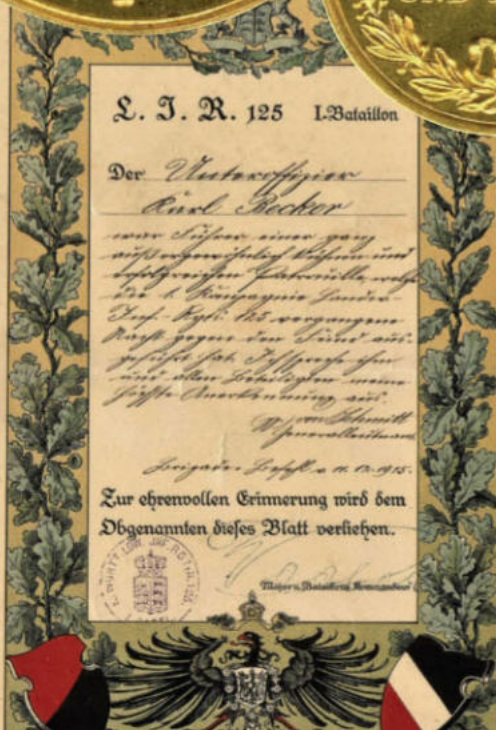 L. I. R. 125 I. Bataillon
Der Unteroffizier
Karl Becker
war Führer einer ganz
außergewöhnlich kühnen und
erfolgreichen Patrouille, welche
die 1. Kompagnie Landw.-
Inf. Rgti. 125 vergangene
Nacht gegen den Feind aus-
geführt hat. Ich spreche ihm
und allen Beteiligten meine
höchste Anerkennung aus.
von Schmitt
Generalleutnant
Brigade-Befehl v. 11.12.1915.
Zur ehrenvollen Erinnerung wird dem
Obgenannten dieses Blatt verliehen.
Major u. Bataillons Kommandeur